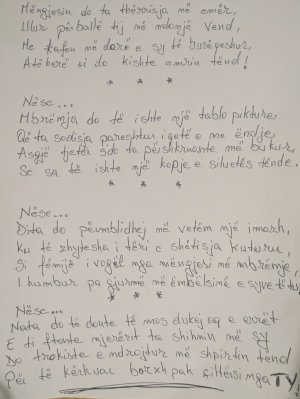 Mëngjesin do ta thërrisja në emër,
Ulur përballë tij në ndonjë vend,
Me kafen në dorë e sy të buzëqeshur,
Atëherë ai do kishte emrin tënd!
* * *
Nëse...
Mbrëmja do të ishte një tablo pikture,
Që ta sodisja pareshtur i qetë e me ëndje,
Asgjë tjetër s'do ta përshkruante më bukur,
Se sa të ishte një kopje e siluetës tënde.
* * *
Nëse...
Dita do përmblidhej në vetëm një imazh,
Ku të zhytesha i tëri e shëtisja kuturu,
Si fëmijë i vogël nga mëngjesi në mbrëmje,
I humbur pa gjurmë në ëmbëlsinë e syve të tu.
* * *
Nëse...
Nata do të donte të mos dukej aq e errët
E ti ftonte njerëzit ta shihnin në sy
Do trokiste e ndrojtur në shpirtin tënd
Për të kërkuar borxh pak çiltërsi nga TY!